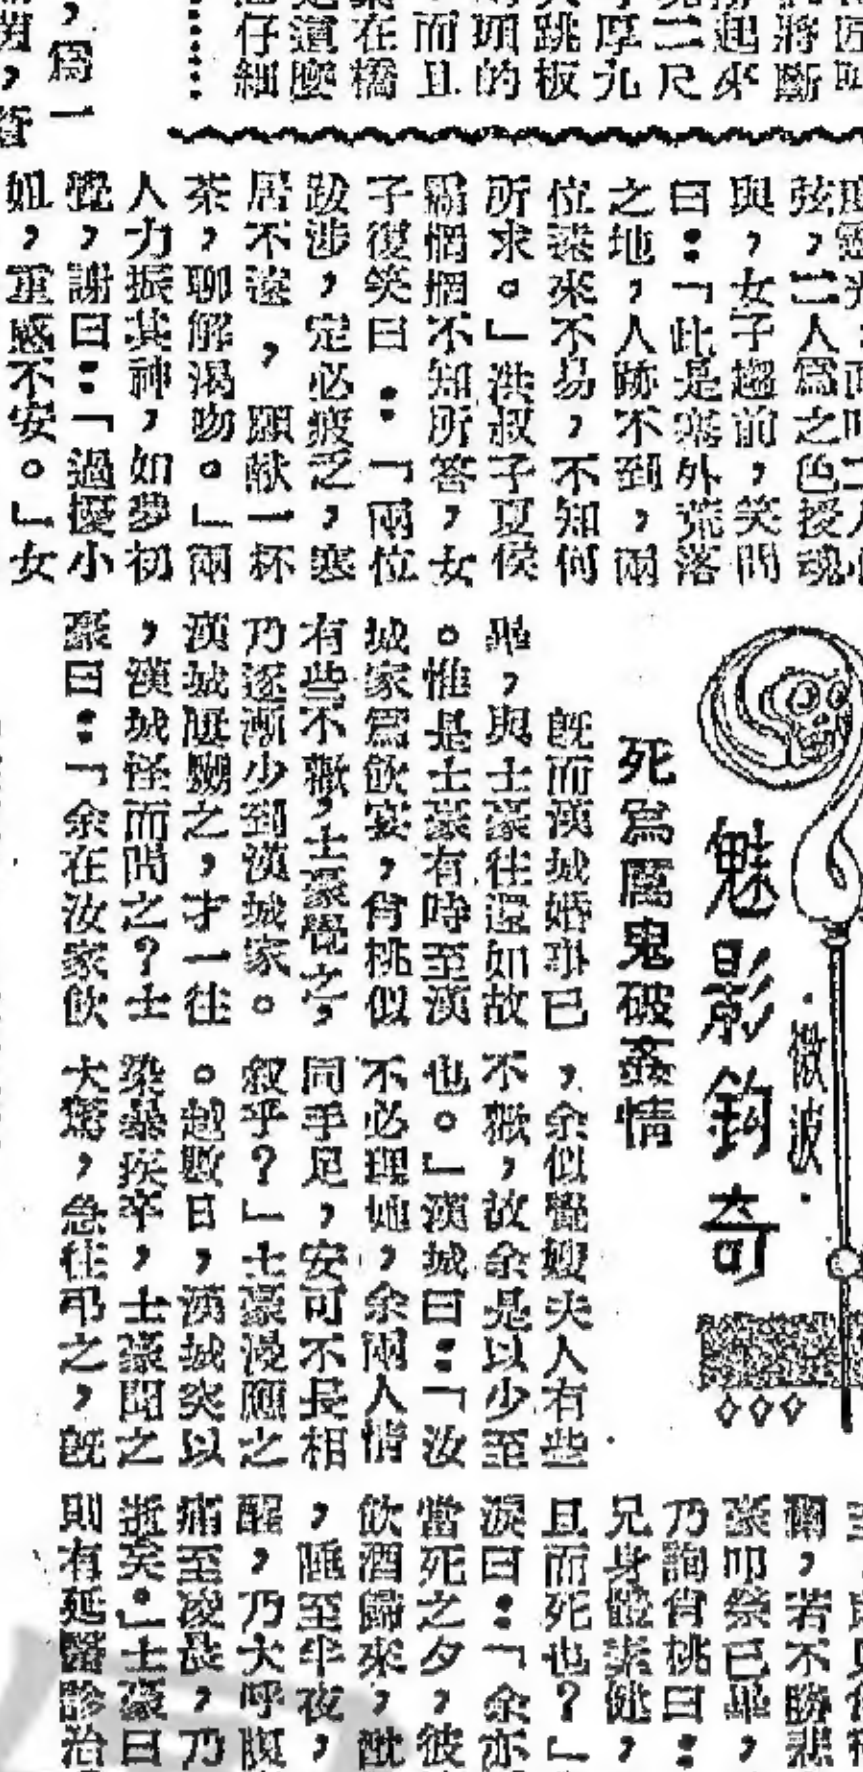 將斷
起來
二尺
厚九
跳板
頭的
而且
在橋
這麼
仔細
，爲一
弦，二人爲之色授魂
與，女子趨前，笑問
曰：「此是塞外荒落
之地，人跡不到，兩
位遠來不易，不知何
所求。」洪叔子夏侯
霸惘惘不知所答，女
子復笑曰：「兩位
跋涉，定必疲乏，寒
居不遠，願献一杯
茶，聊解渴吻。」兩
人力振其神，如夢初
覺，謝曰：「過擾小
姐，重感不安。」女
魅影鈎奇
·微波·
死爲厲鬼破姦情
旣而漢城婚事已
畢，與士豪往還如故
。惟是士豪有時至漢
城家爲飲宴，肖桃似
有些不歡，士豪覺之，
乃逐漸少到漢城家。
漢城屢嬲之，才一往
，漢城怪而問之？士
豪曰：「余在汝家飲
，余似覺嫂夫人有些
不歡，故余是以少至
也。」漢城曰：「汝
不必理她，余兩人情
同手足，安可不長相
叙乎？」士豪漫應之
。越數日，漢城突以
染暴疾卒，士豪聞之
大驚，急往弔之，旣
爾，若不勝悲
豪叩祭已畢，
乃詢肖桃曰：
兄身體素健，
且而死也？」
淚曰：「余亦
當死之夕，彼
飲酒歸來，酖
，睡至半夜，
醒，乃大呼腹
痛至凌晨，乃
逝矣。」士豪曰
則有延醫診治